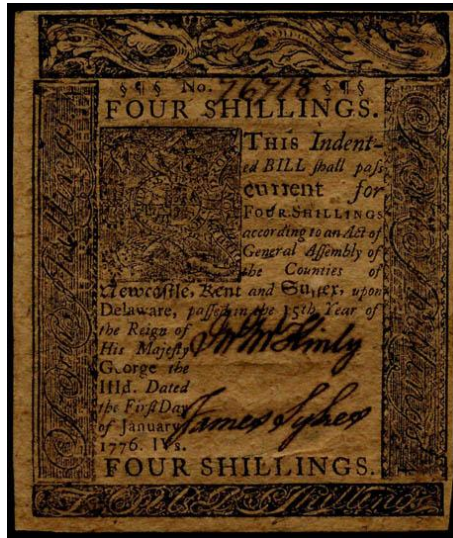 §¶§ No. 76718 §¶§
FOUR SHILLINGS.
THIS Indent-
ed BILL shall pass
current for
FOUR SHILLINGS
according to an Act of
General Assembly of
the Counties of
Newcastle, Kent and Sussex, upon
Delaware, passed in the 15th Year of
the Reign of
His Majesty
George the
IIId. Dated
the First Day
of January
1776. IVs.
Jn McKinly
James Sykes
FOUR SHILLINGS.
Shillings